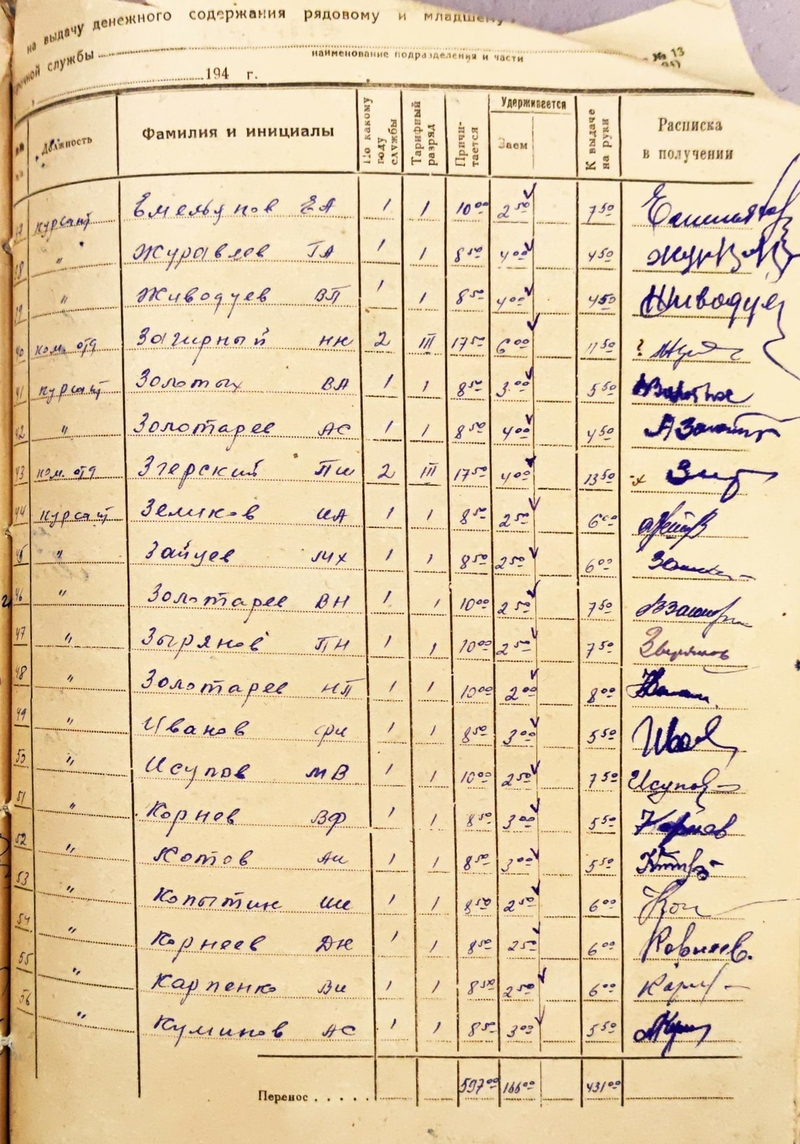 на выдачу денежного содержания рядовому и младшему
срочной службы
наименование подразделения и части
№ 13
194 г.
Должность Фамилия и инициалы По какому году службы Тарифный разряд Причитается Удерживается Заем К выдаче на руки Расписка в получении
курсант Емельянов ЕА 1 1 10 00 2 50 7 50
38 " Журавлев ГА 1 1 8 50 4 00 4 50
39 " Живодуев ВП 1 1 8 50 4 00 4 50 Живодуев
40 ком отд Загирный НН 2 III 17 50 6 00 11 50
41 курсант Золотых ВА 1 1 8 50 3 00 5 50
42 " Золотарев АС 1 1 8 50 4 00 4 50
43 ком. отд Згерский ПШ 2 III 17 50 4 00 13 50
44 курсант Земиков ИА 1 1 8 50 2 50 6 00
45 " Зайцев МХ 1 1 8 50 2 50 6 00
46 " Золотарев ВН 1 1 10 00 2 50 7 50
47 " Зырянов ПН 1 1 10 00 2 50 7 50
48 " Золотарев НП 1 1 10 00 2 00 8 00
49 " Иванов 1 1 8 50 3 00 5 50
50 " Исупов МВ 1 1 10 00 2 50 7 50 Исупов
51 " Корнев ВФ 1 1 8 50 3 00 5 50 Корнев
52 " Котов АИ 1 1 8 50 3 00 5 50
53 " Копытин 1 1 8 50 2 50 6 00 Коп
54 " Корнеев ДК 1 1 8 50 2 50 6 00
55 " Карпенко ВИ 1 1 8 50 2 50 6 00
56 " Куминов АС 1 1 8 50 3 00 5 50
Перенос . . . . . 597 00 166 00 431 00